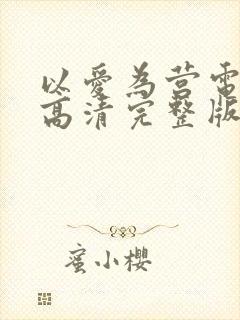 以愛為营電
高清完整版
蜜小櫻